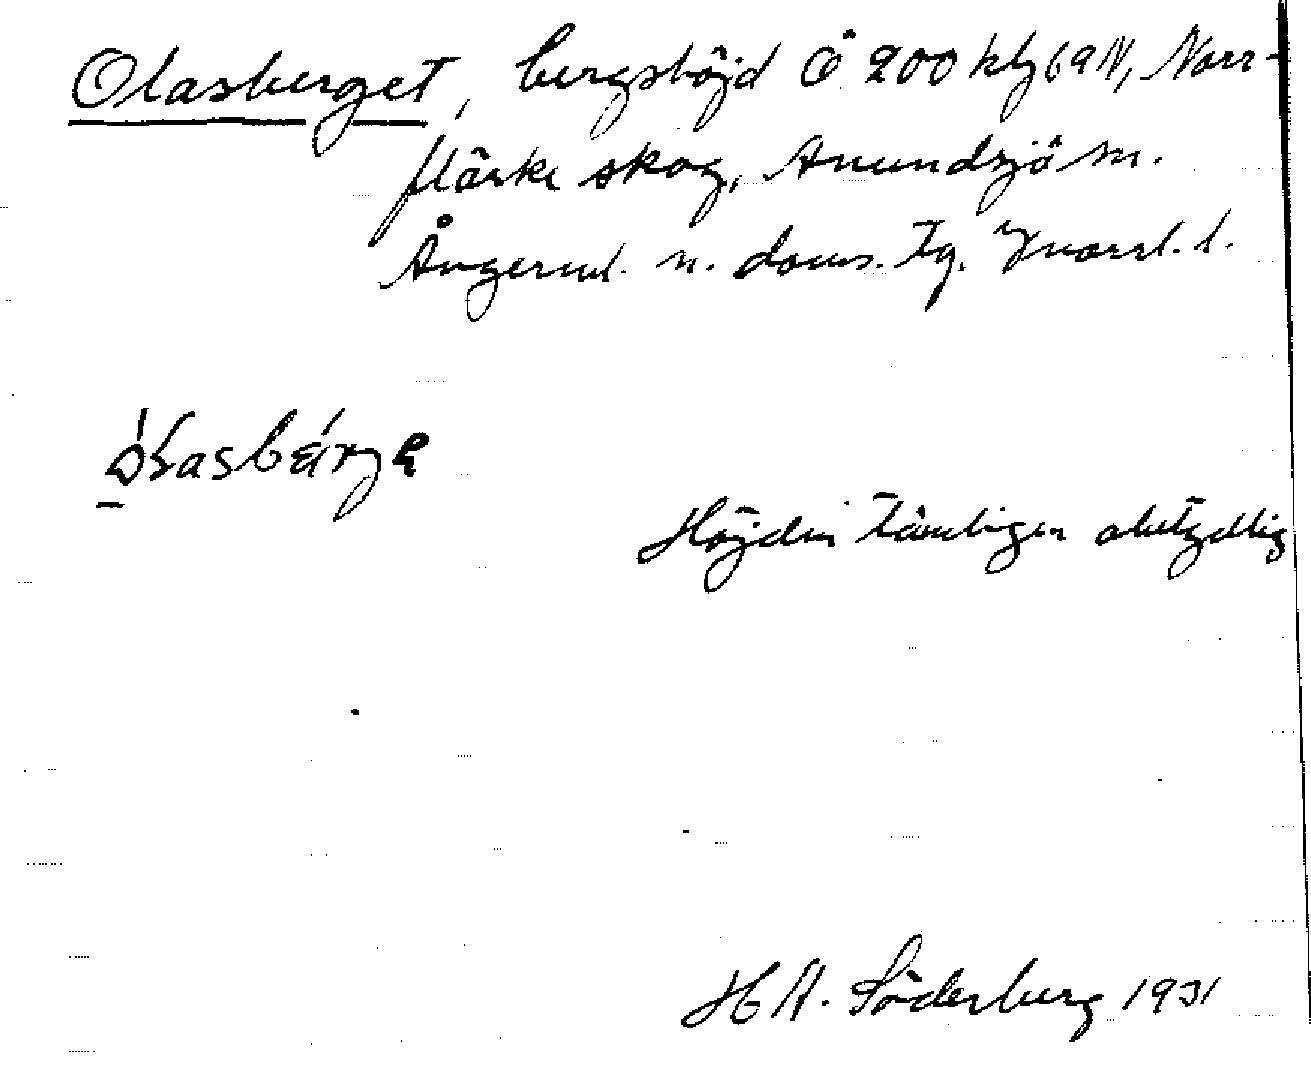 Olasberget, bergshöjd Ö 200 kbg 69 N, Norr-
flärke skog, Anundsjö sn.
Ångerml. n. doms. tg. Västernorrl. l.
Höjden tämligen obetydlig
H A. Söderberg 1931